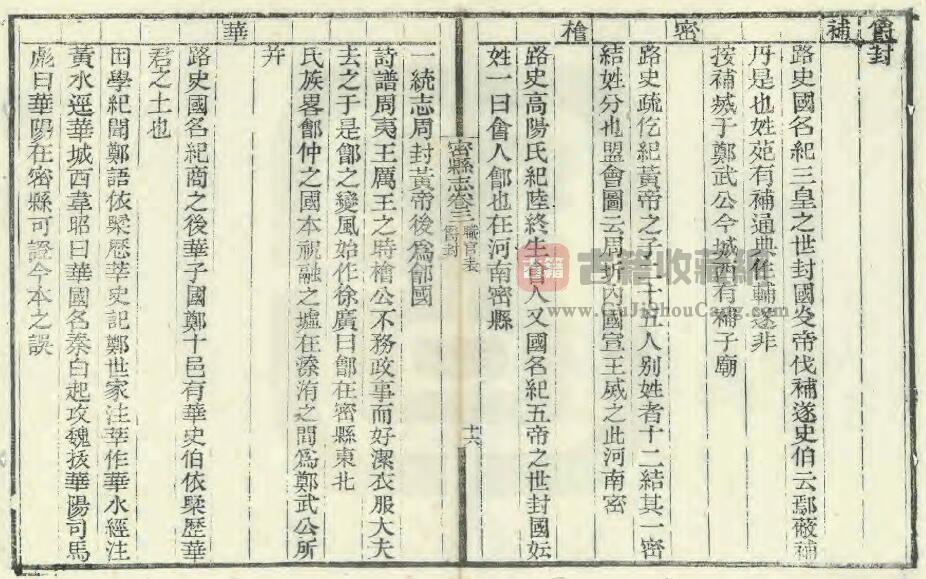 爵封
補
路史國名紀三皇之世封國炎帝伐補遂史伯云鄢蔽補
丹是也姓苑有補通典作輔遂非
按補烕于鄭武公今城西有補子廟
密
路史疏仡紀黃帝之子二十五人别姓者十二結其一密
結姓分也盟會圖云周圻內國宣王烕之此河南密
檜
路史高陽氏紀陸終生會人又國名紀五帝之世封國妘
姓一曰會人鄶也在河南密縣
密縣志卷三 職官表 爵封
十六
一統志周封黃帝後爲鄶國
詩譜周夷王厲王之時檜公不務政事而好潔衣服大夫
去之于是鄶之變風始作徐廣曰鄶在密縣東北
氏族畧鄶仲之國本祝融之墟在溱洧之間爲鄭武公所
并
華
路史國名紀商之後華子國鄭十邑有華史伯依㽥歴華
君之土也
困學紀聞鄭語依㽥歴莘史記鄭世家注莘作華水經注
黃水逕華城西韋昭曰華國名秦白起攻魏拔華陽司馬
彪曰華陽在密縣可證今本之誤
古籍收藏
www.GuJiShouCang.com